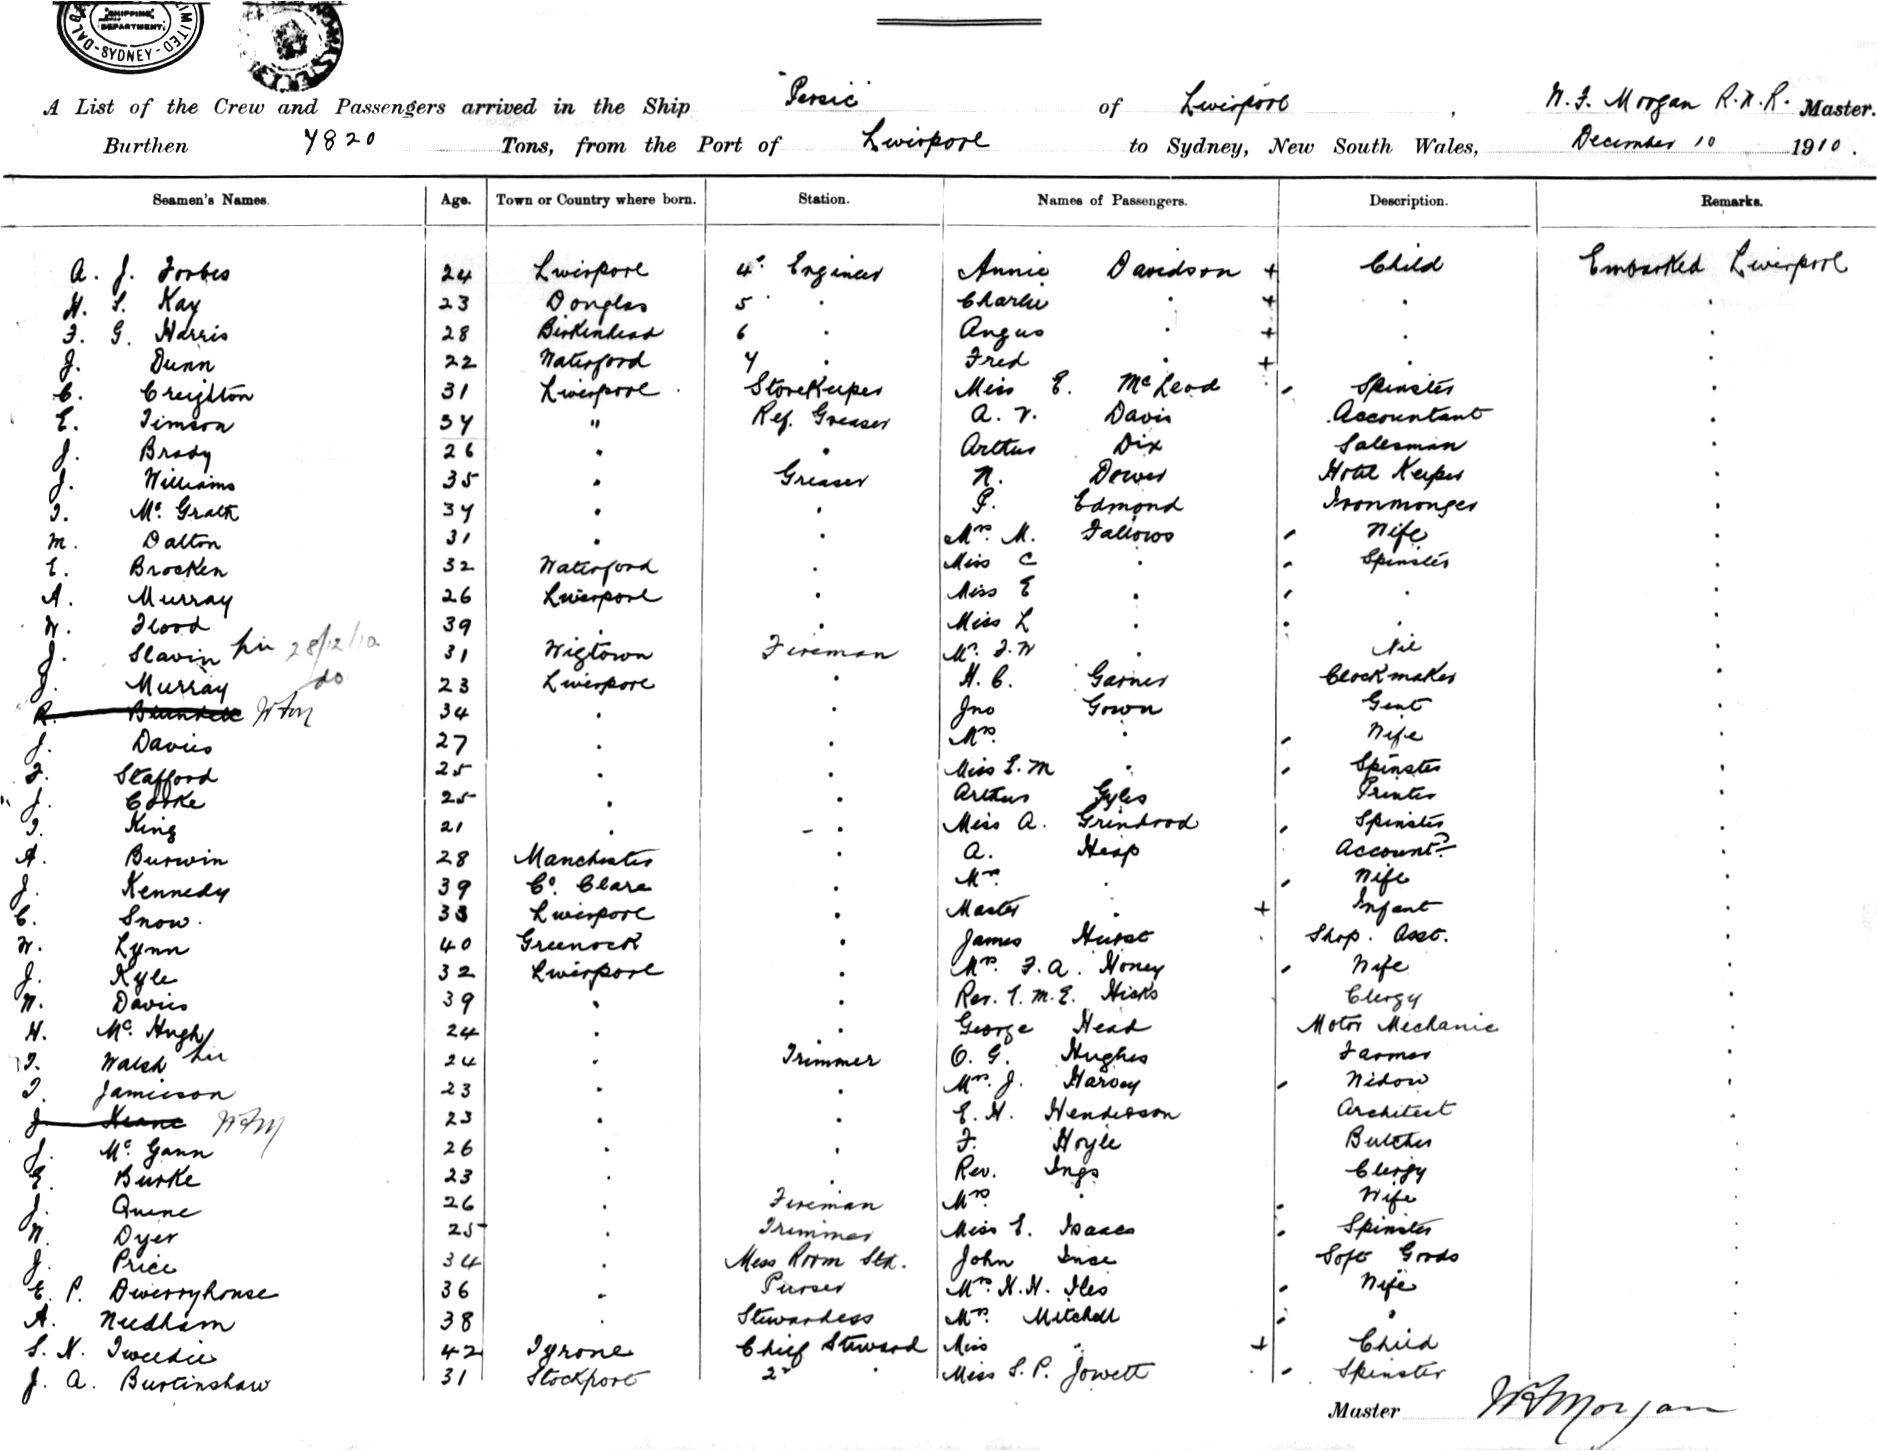 LIMITED
SHIPPING
DEPARTMENT.
DALG
- SYDNEY -
A List of the Crew and Passengers arrived in the Ship "Persic" of Liverpool, W. F. Morgan R.N.R. Master.
Burthen 7820 Tons, from the Port of Liverpool to Sydney, New South Wales, December 10 1910.
Seamen's Names. Age. Town or Country where born. Station. Names of Passengers. Description. Remarks.
A. J. Forbes 24 Liverpool 4th Engineer Annie Davidson + Child Embarked Liverpool
H. S. Kay 23 Douglas 5 " Charlie " + " "
F. G. Harris 28 Birkenhead 6 " Angus " + " "
J. Dunn 22 Waterford 7 " Fred " + " "
C. Creighton 31 Liverpool Storekeeper Miss E. McLeod Spinster "
E. Timson 37 " Ref. Greaser A. V. Davis Accountant "
J. Brady 26 " " Arthur Dix Salesman "
J. Williams 35 " Greaser N. Dower Hotel Keeper "
T. McGrath 37 " " P. Edmond Ironmonger "
M. Dalton 31 " " Mrs. M. Fallows Wife "
E. Brocken 32 Waterford " Miss C " Spinster "
A. Murray 26 Liverpool " Miss E " " "
W. Flood 39 " " Miss L " " "
J. Slavin 28/12/10 31 Wigtown Fireman Mr. F. W " Nil "
J. Murray do 23 Liverpool " H. C. Garner Clockmaker "
R. Blundell WFM 34 " " Jno Gown Gent "
J. Davies 27 " " Mrs. " Wife "
F. Stafford 25 " " Miss E. M " Spinster "
J. Cooke 25 " " Arthur Gyles Printer "
T. King 21 " " Miss A. Grindrod Spinster "
A. Burwin 28 Manchester " A. Heap Accountt "
J. Kennedy 39 Co. Clare " Mrs. " Wife "
C. Snow 33 Liverpool " Master " + Infant "
W. Lynn 40 Greenock " James Hurst Shop. Asst. "
J. Kyle 32 Liverpool " Mrs. F. A. Honey Wife "
W. Davies 39 " " Rev. T. M. E. Hicks Clergy "
H. McHugh 24 " " George Head Motor Mechanic "
T. Walsh 24 " Trimmer O. G. Hughes Farmer "
T. Jamieson 23 " " Mrs. J. Harvey Widow "
J. Keane WFM 23 " " E. H. Henderson Architect "
J. McGann 26 " " F. Hoyle Butcher "
E. Burke 23 " " Rev. Ings Clergy "
J. Quine 26 " Fireman Mrs " Wife "
W. Dyer 25 " Trimmer Miss E. Isaacs Spinster "
J. Price 34 " Mess Room Std. John Ince Soft Goods "
E. P. Dwerryhouse 36 " Purser Mrs. H. H. Iles Wife "
A. Needham 38 " Stewardess Mrs. Mitchell " "
S. N. Tweedie 42 Tyrone Chief Steward Miss " + Child "
J. A. Burtinshaw 31 Stockport 2nd " Miss S. P. Jowett Spinster "
Master WFMorgan